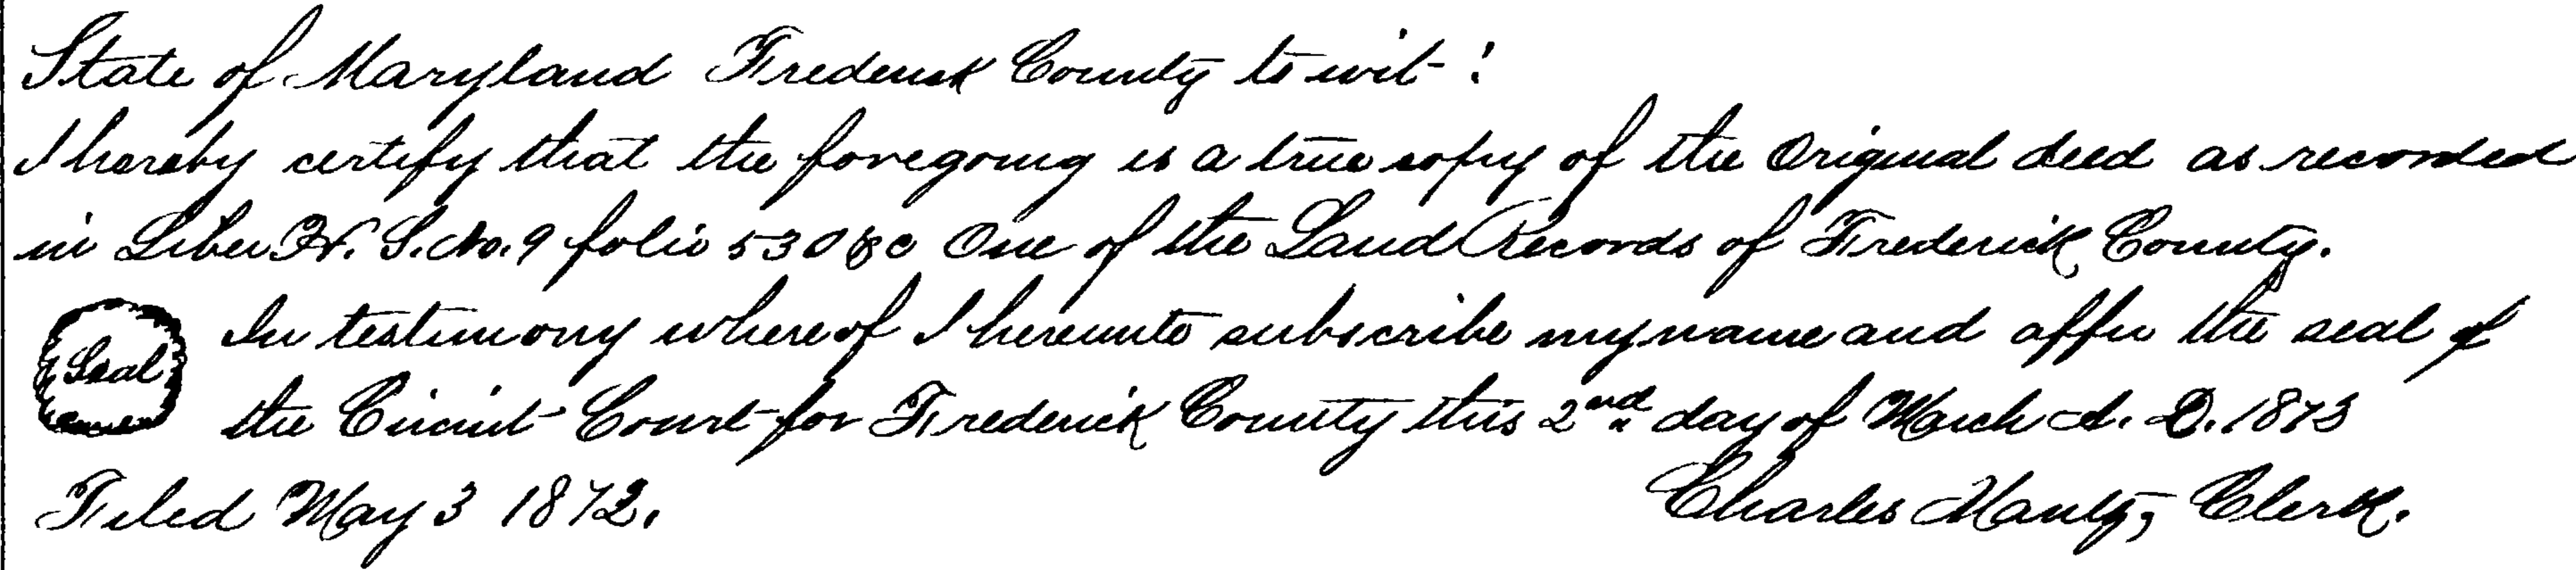 State of Maryland Frederick County to wit:
I hereby certify that the foregoing is a true copy of the Original deed as recorded
in Liber H. S. No. 9 folio 530 &c One of the Land Records of Frederick County.
In testimony whereof I hereunto subscribe my name and affix the seal of
Seal
the Circuit Court for Frederick County this 2nd day of March A. D. 1873
Filed May 3 1872.
Charles Mantz, Clerk.